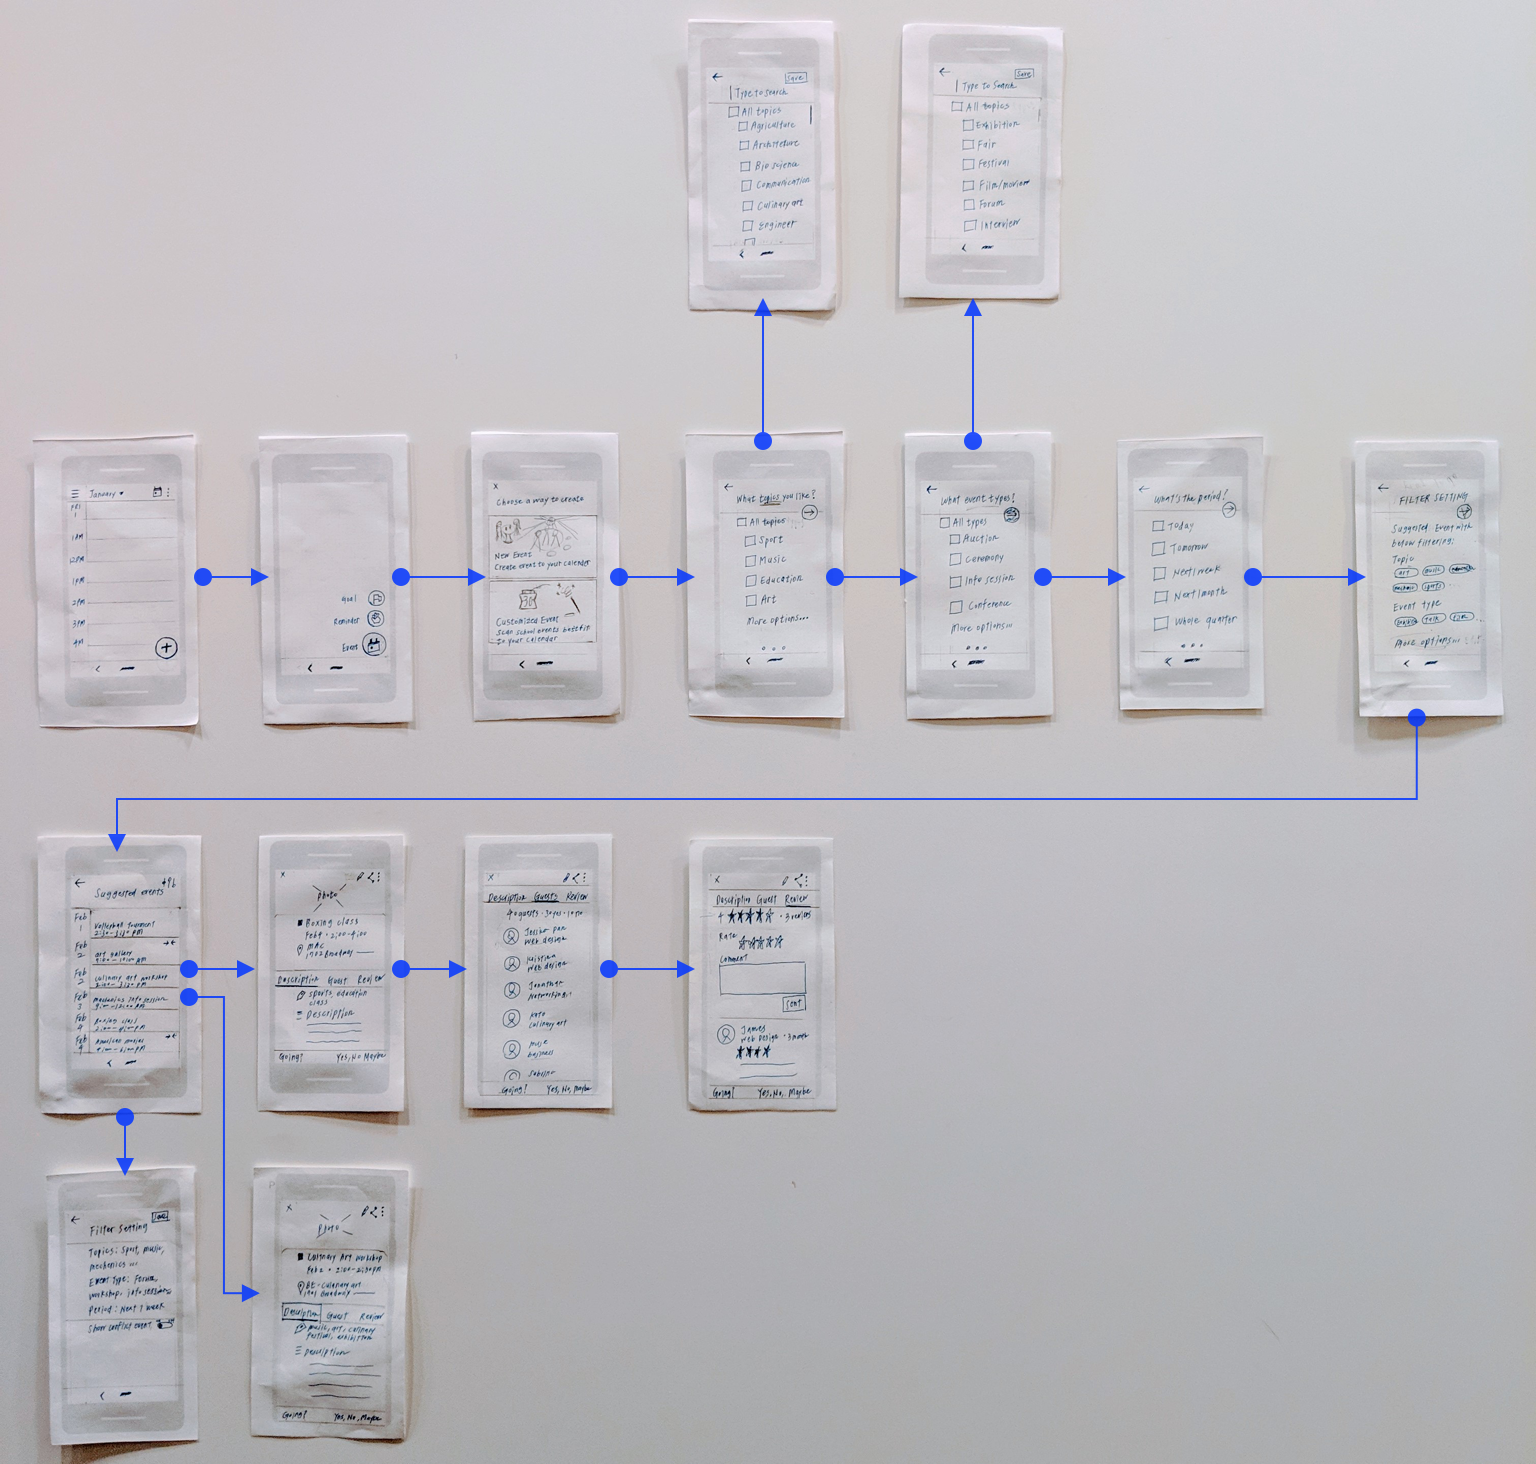 Save
Type to search
All topics
Agriculture
Architeture
Bio science
Communication
Culinary art
Engineer
Save
Type to search
All topics
Exhibition
Fair
Festival
Film/movie
Forum
Interview
January
FRI
1
1AM
12PM
1PM
2PM
3PM
4PM
Goal
Reminder
Event
x
Choose a way to create
New Event
Create event to your calender
30
Customized Event
Scan school events best fit
in your calendar
What topics you like?
All topics
Sport
Music
Education
Art
More options...
What event types?
All types
Auction
Ceremony
Info session
Conference
More options...
What's the period?
Today
Tomorrow
Next 1 week
Next 1 month
Whole quarter
FILTER SETTING
Suggested Event with
below filtering:
Topic
art music
sports
Event type
talk
More options...
Suggested events
Feb
1
Volleyball tournment
2:30-3:30 PM
Feb
2
art gallery
Feb
2
culinary art workshop
Feb
3
mechanics info session
Feb
4
Boxing class
Feb
American movies
x
photo
Boxing class
Feb 4 · 2:00-4:00
MAC
1702 Broadway
Description Guest Review
sports, education
class
Description
Going? Yes, No Maybe
Description Guests Review
Web design
Kristina
Web design
Jonathan
Networking
Kato
Culinary art
business
Sabrina
Going? Yes, No, Maybe
x
Description Guest Review
4 · 3 reviews
Rate
Comment
Sent
James
Web Design
Going? Yes, No, Maybe
Filter Setting
Save
Topics: Sport, music,
mechanics ...
Event type: Forum,
workshop, info sessions
Period: Next 1 week
Show conflict event
x
photo
Culinary Art workshop
Feb 2 · 2:00-2:30pm
BE-Culinary art
1701 Broadway
Description Guest Review
music, art, culinary
festival, exhibition
Description
Going? Yes, No, Maybe